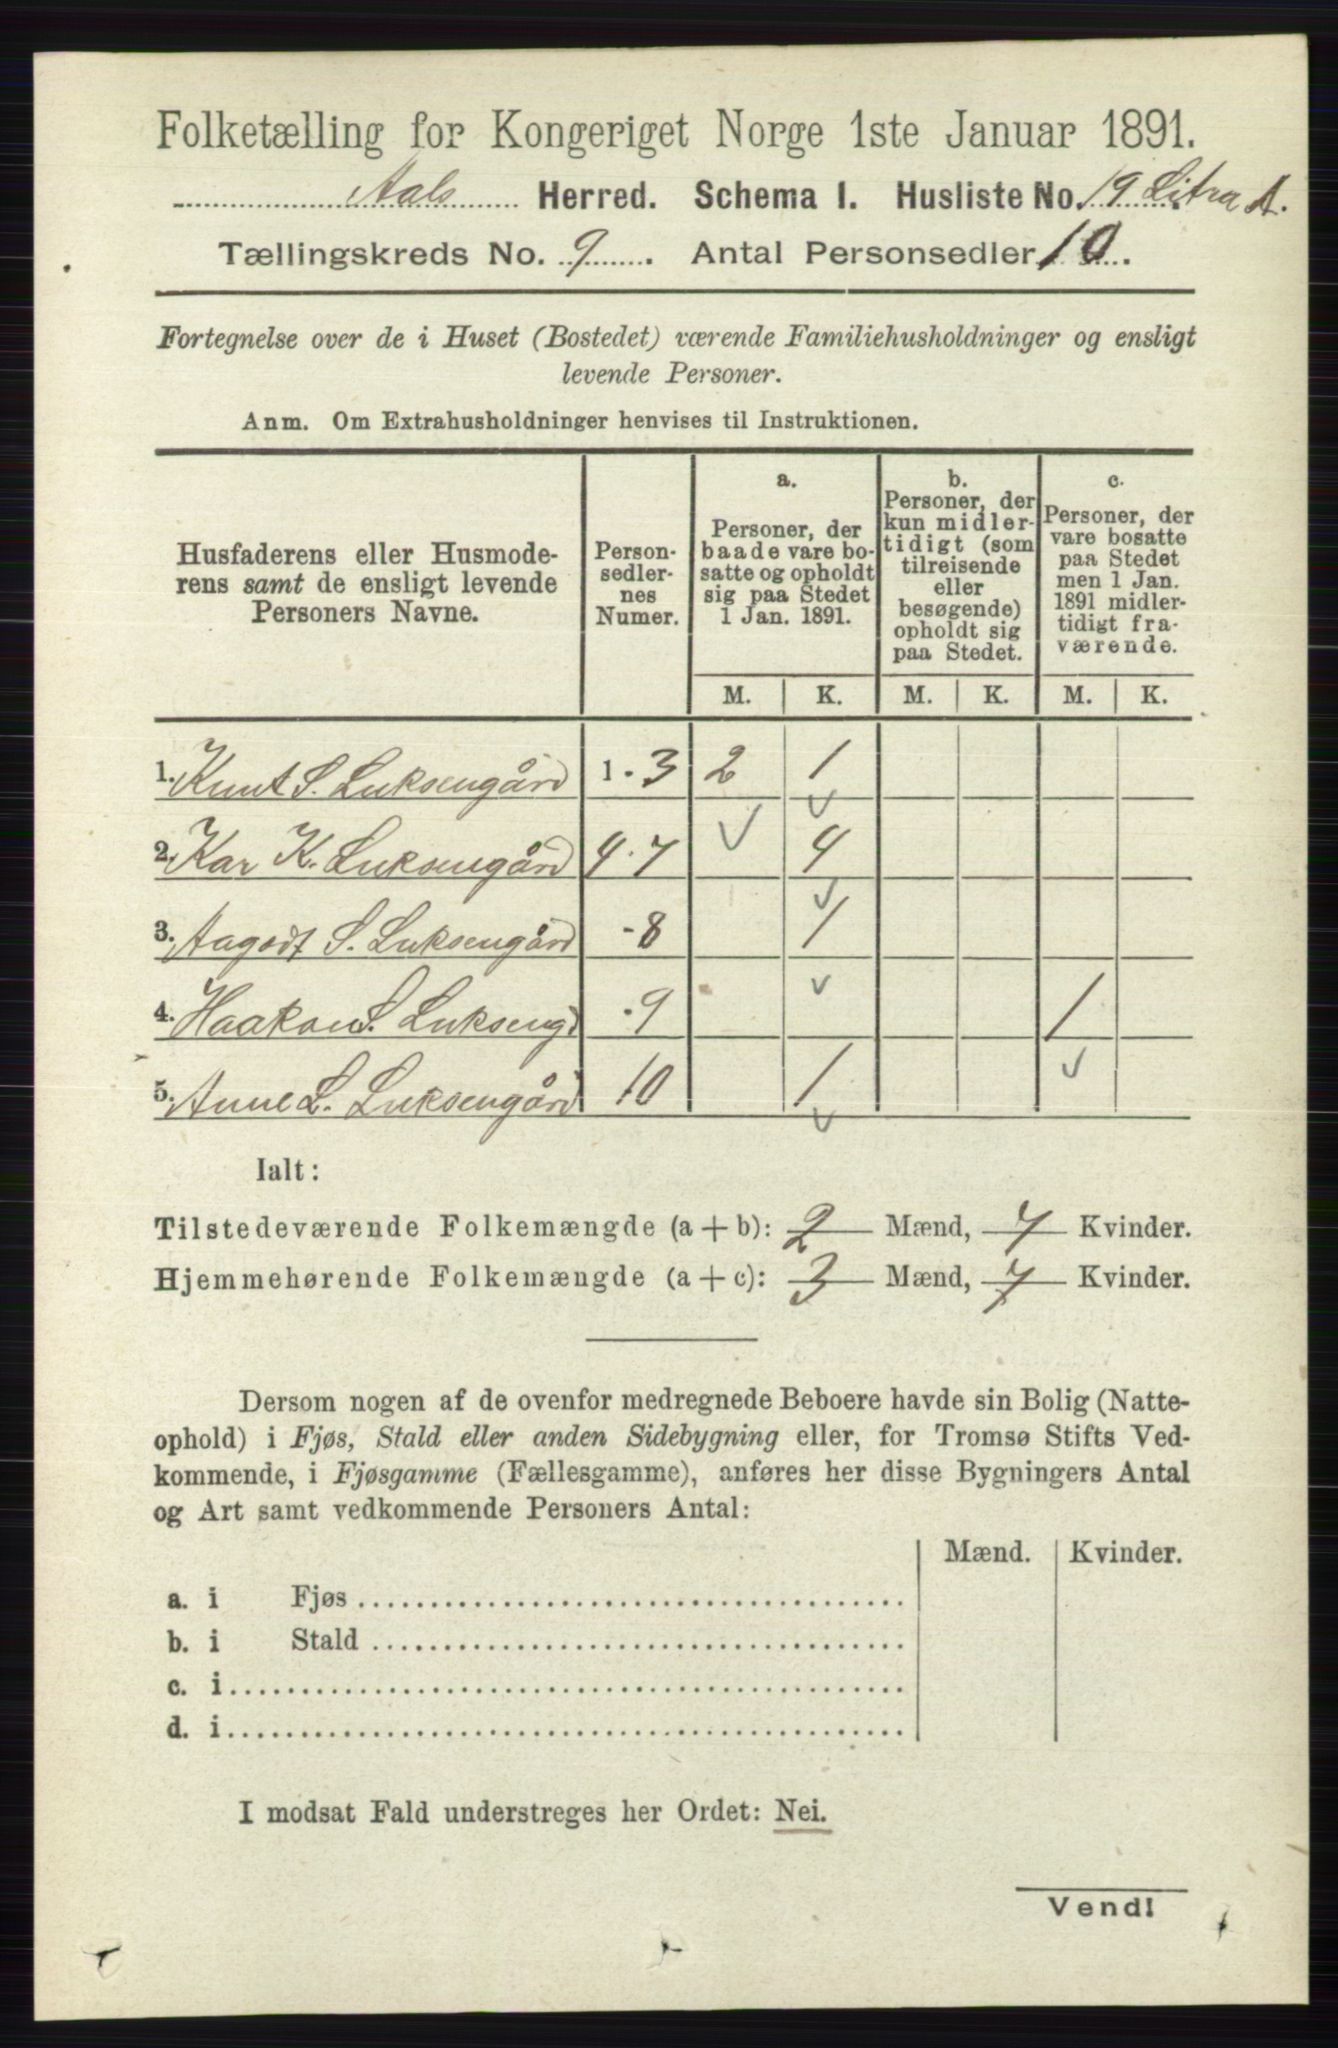 Folketælling for Kongeriget Norge 1ste Januar 1891.
Aals Herred. Schema I. Husliste No. 19 Litra A.
Tællingskreds No. 9. Antal Personsedler 10.
Fortegnelse over de i Huset (Bostedet) værende Familiehusholdninger og ensligt
levende Personer.
Anm. Om Extrahusholdninger henvises til Instruktionen.
Husfaderens eller Husmode-
rens samt de ensligt levende
Personers Navne.
Person-
sedler-
nes
Numer.
a.
Personer, der
baade vare bo-
satte og opholdt
sig paa Stedet
1 Jan. 1891.
b.
Personer, der
kun midler-
tidigt (som
tilreisende
eller
besøgende)
opholdt sig
paa Stedet.
c.
Personer, der
vare bosatte
paa Stedet
men 1 Jan.
1891 midler-
tidigt fra-
værende.
M. K. M. K. M. K.
1. Knut S. Luksengård 1 - 3 2 1
2. Kar K. Luksengård 4 - 7 4
3. Aagodt S. Luksengård - 8 1
4. Haakon S. Lukseng - 9 1
5. Anne L. Luksengård 10 1
Ialt:
Tilstedeværende Folkemængde (a + b): 2 Mænd, 7 Kvinder.
Hjemmehørende Folkemængde (a + c): 3 Mænd, 7 Kvinder.
Dersom nogen af de ovenfor medregnede Beboere havde sin Bolig (Natte-
ophold) i Fjøs, Stald eller anden Sidebygning eller, for Tromsø Stifts Ved-
kommende, i Fjøsgamme (Fællesgamme), anføres her disse Bygningers Antal
og Art samt vedkommende Personers Antal:
Mænd. Kvinder.
a. i Fjøs
b. i Stald
c. i
d. i
I modsat Fald understreges her Ordet: Nei.
Vend!